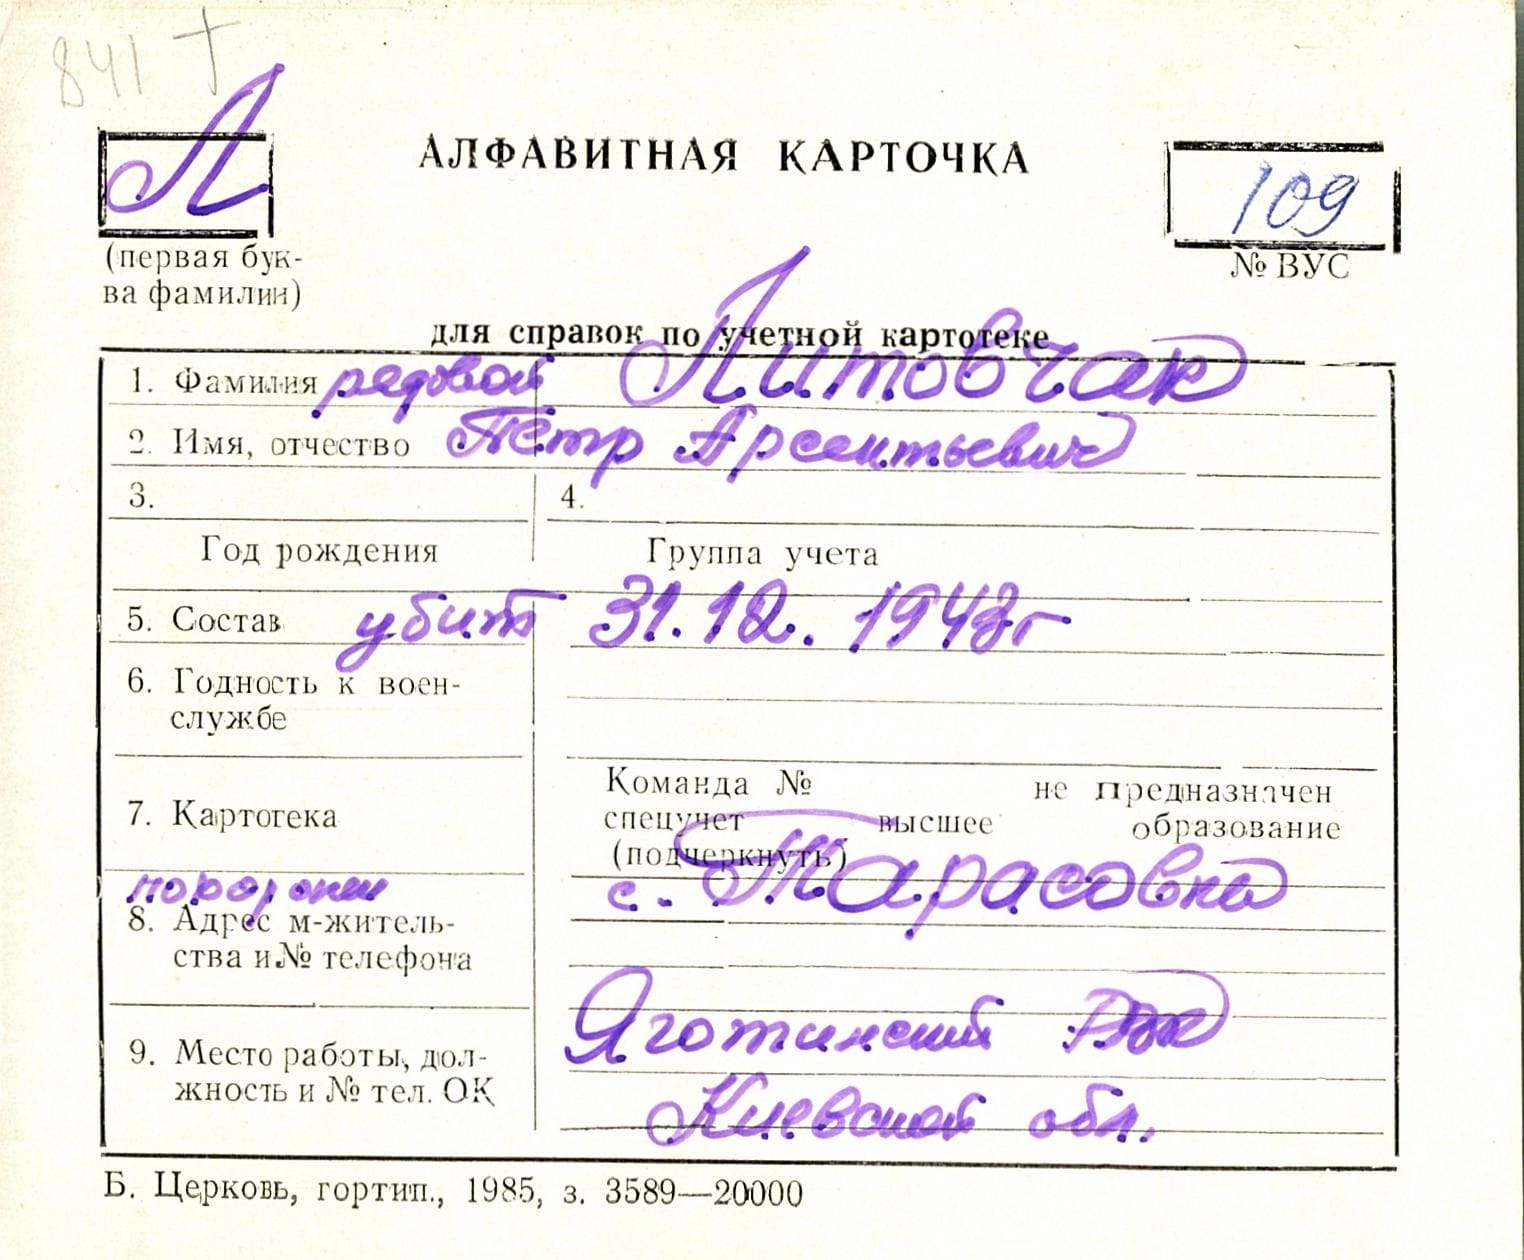 841 †
Л
АЛФАВИТНАЯ КАРТОЧКА
109
(первая бук-
ва фамилии)
№ ВУС
для справок по учетной картотеке
1. Фамилия рядовой Литовчак
2. Имя, отчество Пётр Арсентьевич
3. 4.
Год рождения Группа учета
5. Состав убит 31.12.1943г
6. Годность к воен-
службе
Команда № не предназначен
7. Картотека спецучет высшее образование
(подчеркнуть)
похоронен с. Тарасовка
8. Адрес м-житель-
ства и № телефона
Яготинский
9. Место работы, дол-
жность и № тел. ОК
Киевской обл.
Б. Церковь, гортип., 1985, з. 3589—20000